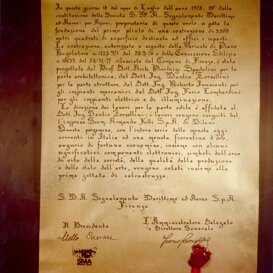 In questo giorno 18 del mese di Luglio dell'anno 1978, 35° dalla
costituzione della Società S.M.A. Segnalamento Marittimo
ed Aereo, per Azioni,
fondazione del primo plinto di una costruzione di 5.500
metri quadrati di superficie destinata ad offici e reparti.
La costruzione, autorizzata a seguito della Variante al Piano
Regolatore n. del e Concessione Edilizia
n. del rilasciata dal Comune di Firenze, è stata
progettata dal Dott. Arch. per la
parte architettonica, dal Dott. Ing. Danilo Zorattini
per la parte strutture, dal Dott. Ing. Roberto Innocenti per
gli impianti meccanici, dal Dott. Ing. Furio Lombardini
per gli impianti elettrici e di illuminazione.
La direzione dei lavori per la parte edile è affidata al
Dott. Ing. Danilo Zorattini, i lavori vengono eseguiti dal
l'impresa Geom. Armando Felli S.p.A. di Milano
Questa pergamena, con l'intera serie delle monete oggi
correnti in Italia ed una moneta fiorentina d'oro
augurio di fortuna economica, insieme con alcuni
significativi componenti elettronici, simboli dell'impegno
di vita della società, della qualità della produzione
e dello stato dell'arte, vengono calati insieme alla
prima gettata di calcestruzzo.
S.M.A. Segnalamento Marittimo ed Aereo S.p.A.
Firenze
Il Presidente
L'Amministratore Delegato
e Direttore Generale
SMA